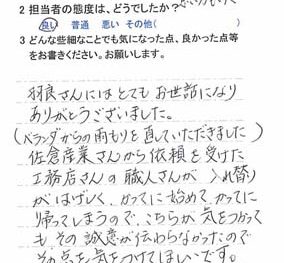 2 担当者の態度は、どうでしたか?
良い 普通 悪い その他(
3 どんな些細なことでも気になった点、良かった点等
をお書きください。お願いします。
羽良さんにはとてもお世話になり
ありがとうございました。
(ベランダからの雨もりを直していただきました)
佐倉産業さんから依頼を受けた
工務店さんの職人さんが入れ替り
がはげしく、かってに始めて、かってに
帰ってしまうので、こちらが気をつかって
もその誠意が伝わらなかったので
その点を気をつけてほしいです。